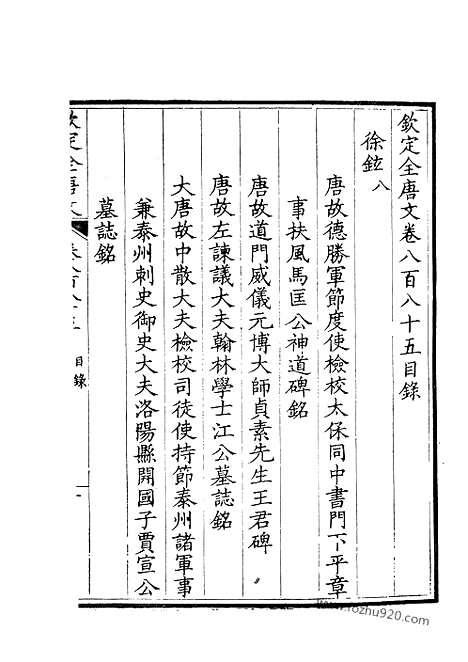 欽定全唐文卷八百八十五目錄
徐鉉 八
唐故德勝軍節度使檢校太保同中書門下平章
事扶風馬匡公神道碑銘
唐故道門威儀元博大師貞素先生王君碑
唐故左諫議大夫翰林學士江公墓誌銘
大唐故中散大夫檢校司徒使持節泰州諸軍事
兼泰州刺史御史大夫洛陽縣開國子賈宣公
墓誌銘
欽定全唐文
目錄
一
www.rozhu920.com